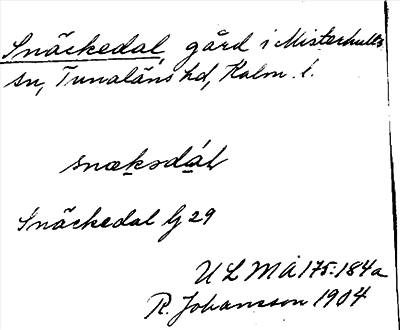 Snäckedal, gård i Misterhults
sn, Tunaläns hd, Kalm. l.
snækədál
Snäckedal G 29
ULMA 175:184a
R. Johansson 1904